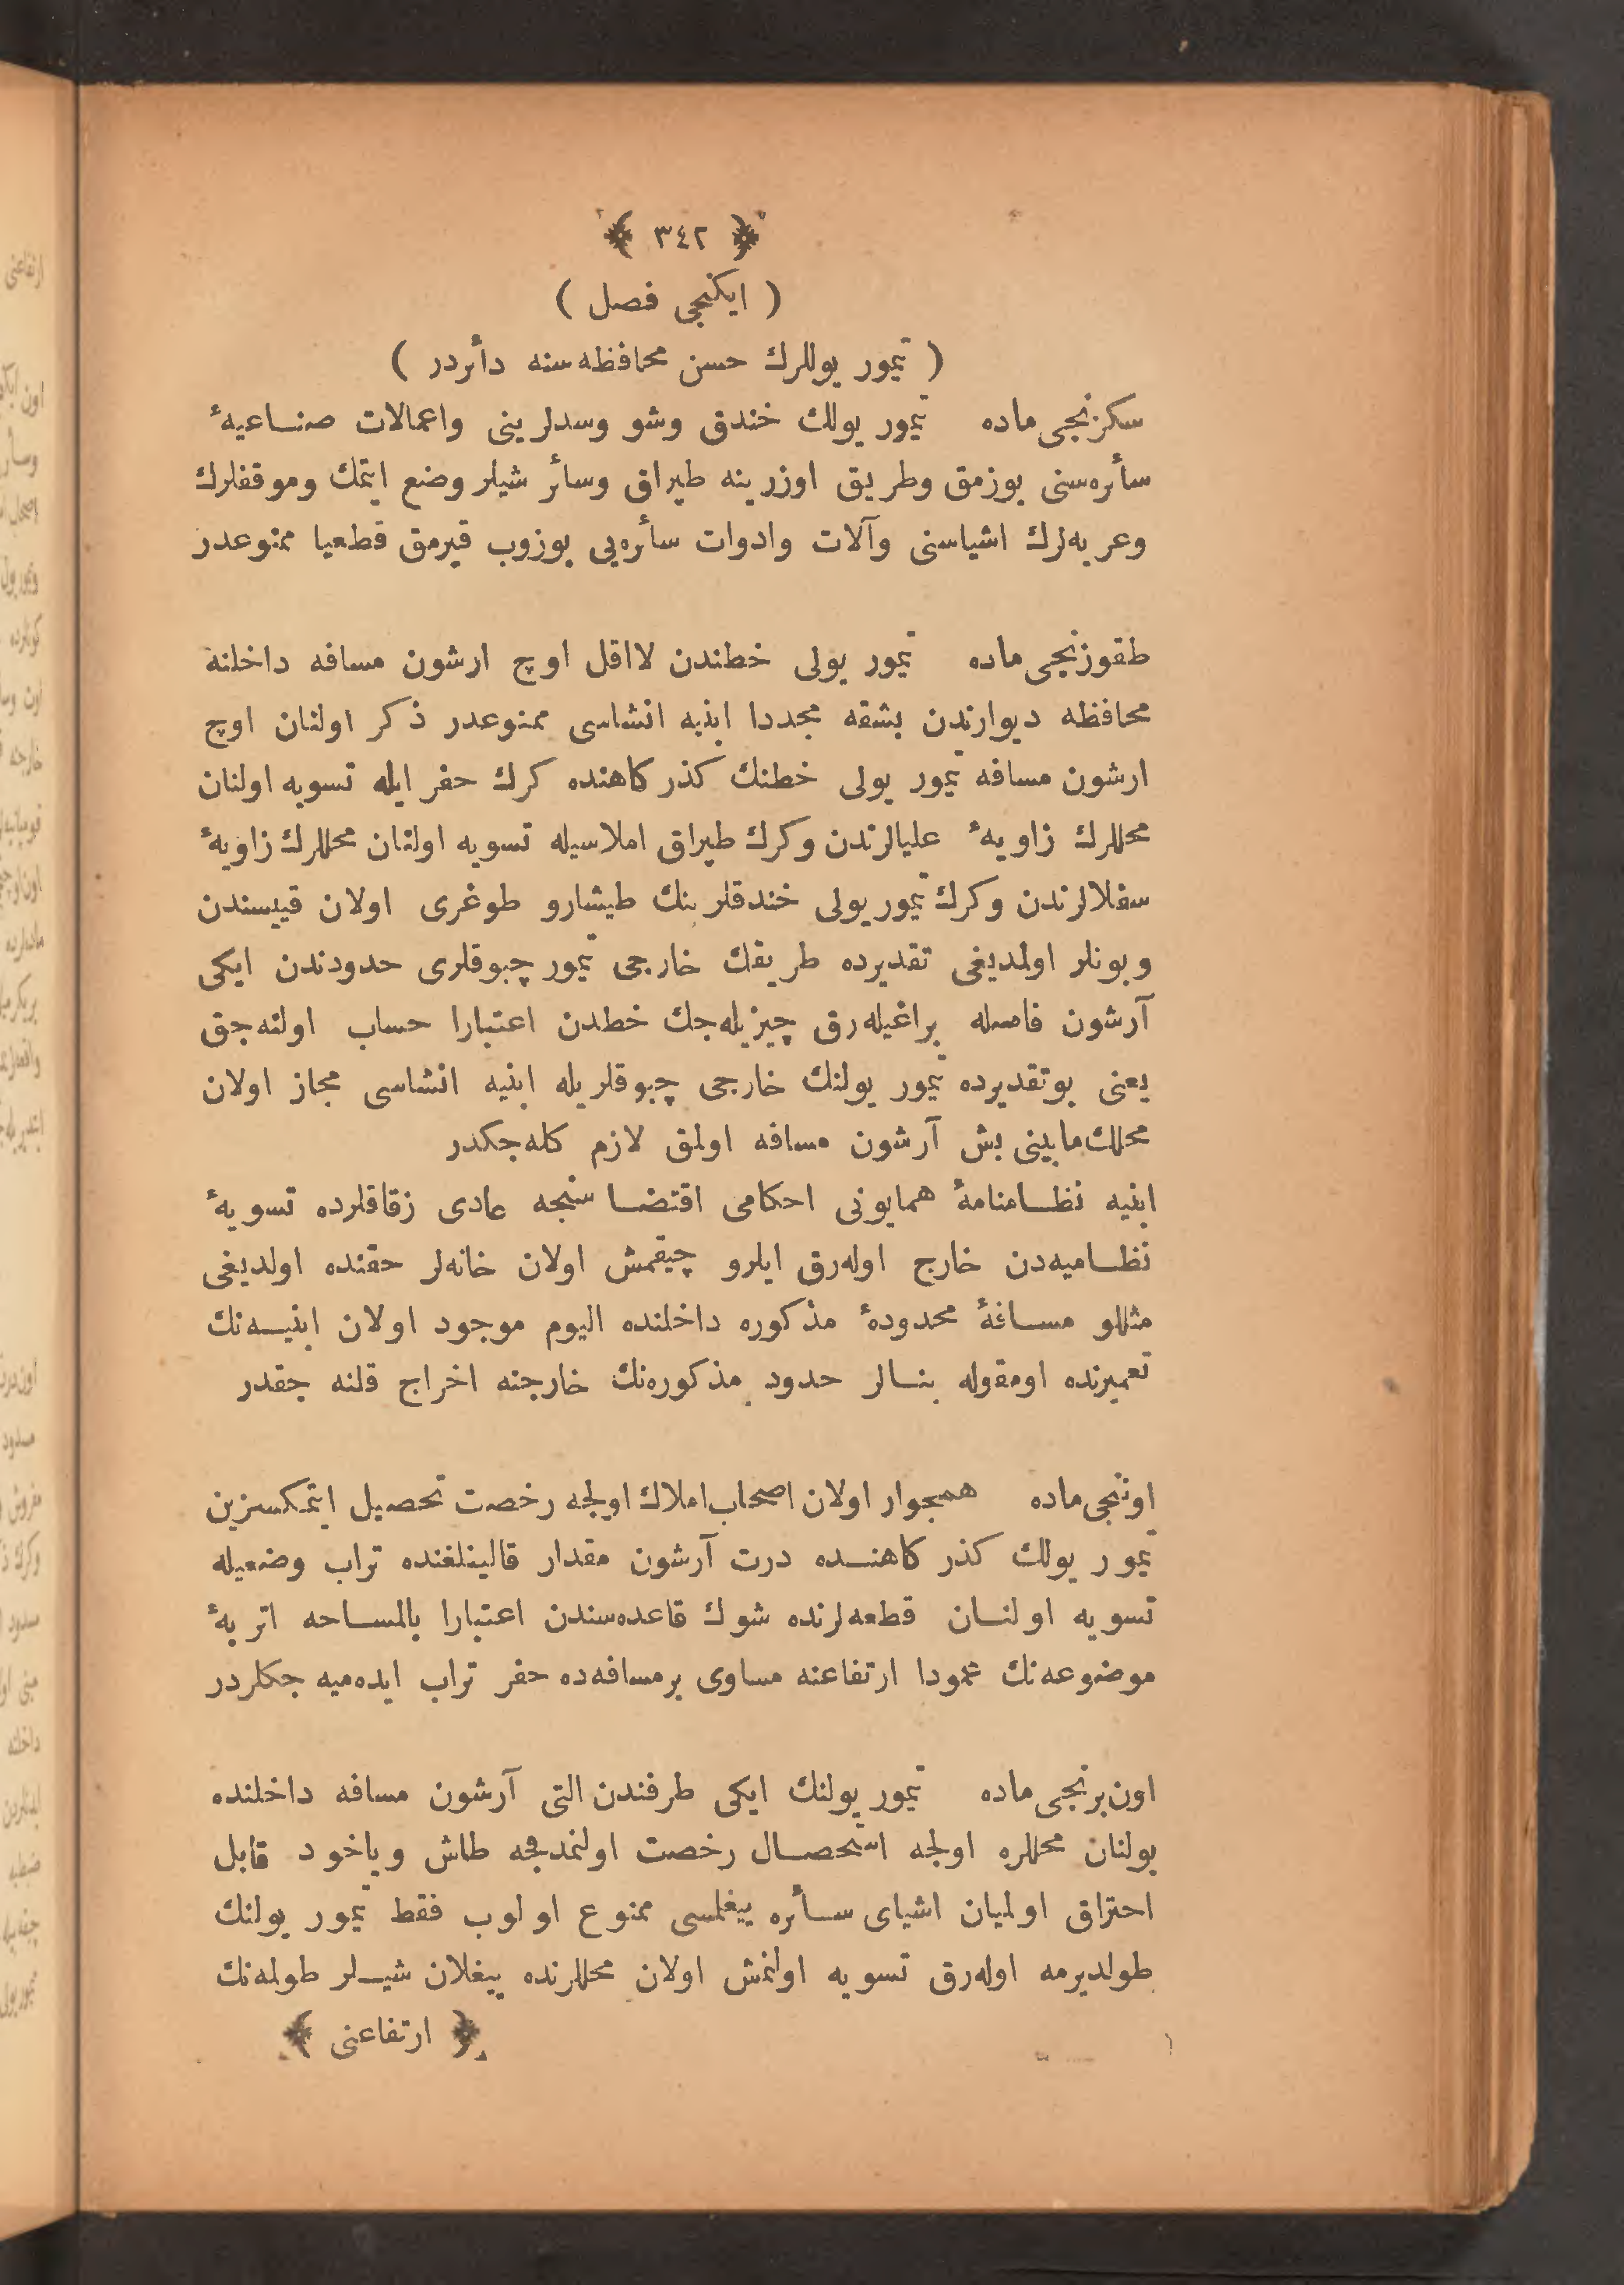 ﴿ ٣٤٢ ﴾
( ايكنجى فصل )
( تيمور يوللرك حسن محافظه‌سنه دأئردر )
سكزنجى ماده تيمور يولك خندق وشو وسدلرينى واعمالات صناعيهٔ
سأئره‌سنى بوزمق وطريق اوزرينه طپراق وسائر شيلر وضع ايتمك وموقفلرك
وعربه‌لرك اشياسنى وآلات وادوات سأئره‌يى بوزوب قيرمق قطعيا ممنوعدر
طقوزنجى ماده تيمور يولى خطندن لااقل اوچ ارشون مسافه داخلنه
محافظه ديوارندن بشقه مجددا ابنيه انشاسى ممنوعدر ذكر اولنان اوچ
ارشون مسافه تيمور يولى خطنك كذركاهنده كرك حفر ايله تسويه اولنان
محللرك زاويهٔ عليالرندن وكرك طپراق املاسيله تسويه اولنان محللرك زاويهٔ
سفلالرندن وكرك تيمور يولى خندقلرينك طيشارو طوغرى اولان قييسندن
وبونلر اولمديغى تقديرده طريقك خارجى تيمور چبوقلرى حدودندن ايكى
آرشون فاصله براغيله‌رق چيزيله‌جك خطدن اعتبارا حساب اولنه‌جق
يعنى بوتقديرده تيمور يولنك خارجى چبوقلريله ابنيه انشاسى مجاز اولان
محلك مابينى بش آرشون مسافه اولمق لازم كله‌جكدر
ابنيه نظامنامهٔ همايونى احكامى اقتضاسنجه عادى زقاقلرده تسويهٔ
نظاميه‌دن خارج اوله‌رق ايلرو چيقمش اولان خانه‌لر حقنده اولديغى
مثللو مسافهٔ محدودهٔ مذكوره داخلنده اليوم موجود اولان ابنيه‌نك
تعميرنده اومقوله بنالر حدود مذكوره‌نك خارجنه اخراج قلنه جقدر
اوننجى ماده همجوار اولان اصحاب املاك اولجه رخصت تحصيل ايتمكسزين
تيمور يولك كذركاهنده درت آرشون مقدار قالينلغنده تراب وضعيله
تسويه اولنان قطعه‌لرنده شوك قاعده‌سندن اعتبارا بالمساحه اتربهٔ
موضوعه‌نك عمودا ارتفاعنه مساوى برمسافه‌ده حفر تراب ايده‌ميه جكلردر
اون برنجى ماده تيمور يولنك ايكى طرفندن التى آرشون مسافه داخلنده
بولنان محللره اولجه استحصال رخصت اولنمدقجه طاش وياخود قابل
احتراق اولميان اشياى سأئره ييغلمسى ممنوع اولوب فقط تيمور يولنك
طولديرمه اوله‌رق تسويه اولنمش اولان محللرنده ييغلان شيلر طولمه‌نك
﴿ ارتفاعنى ﴾